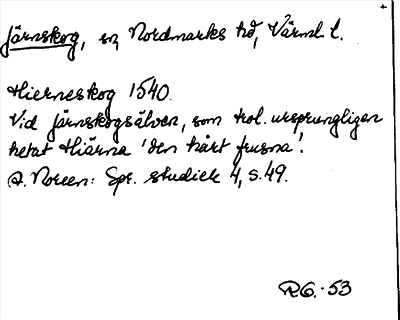 Järnskog, sn, Nordmarks hd, Värml. l.
Hierneskog 1540.
Vid Järnskogsälven, som trol. ursprungligen
hetat Hiärna 'den hårt frusna'.
A. Noreen: Spr. studier 4, s. 49.
RG. -53